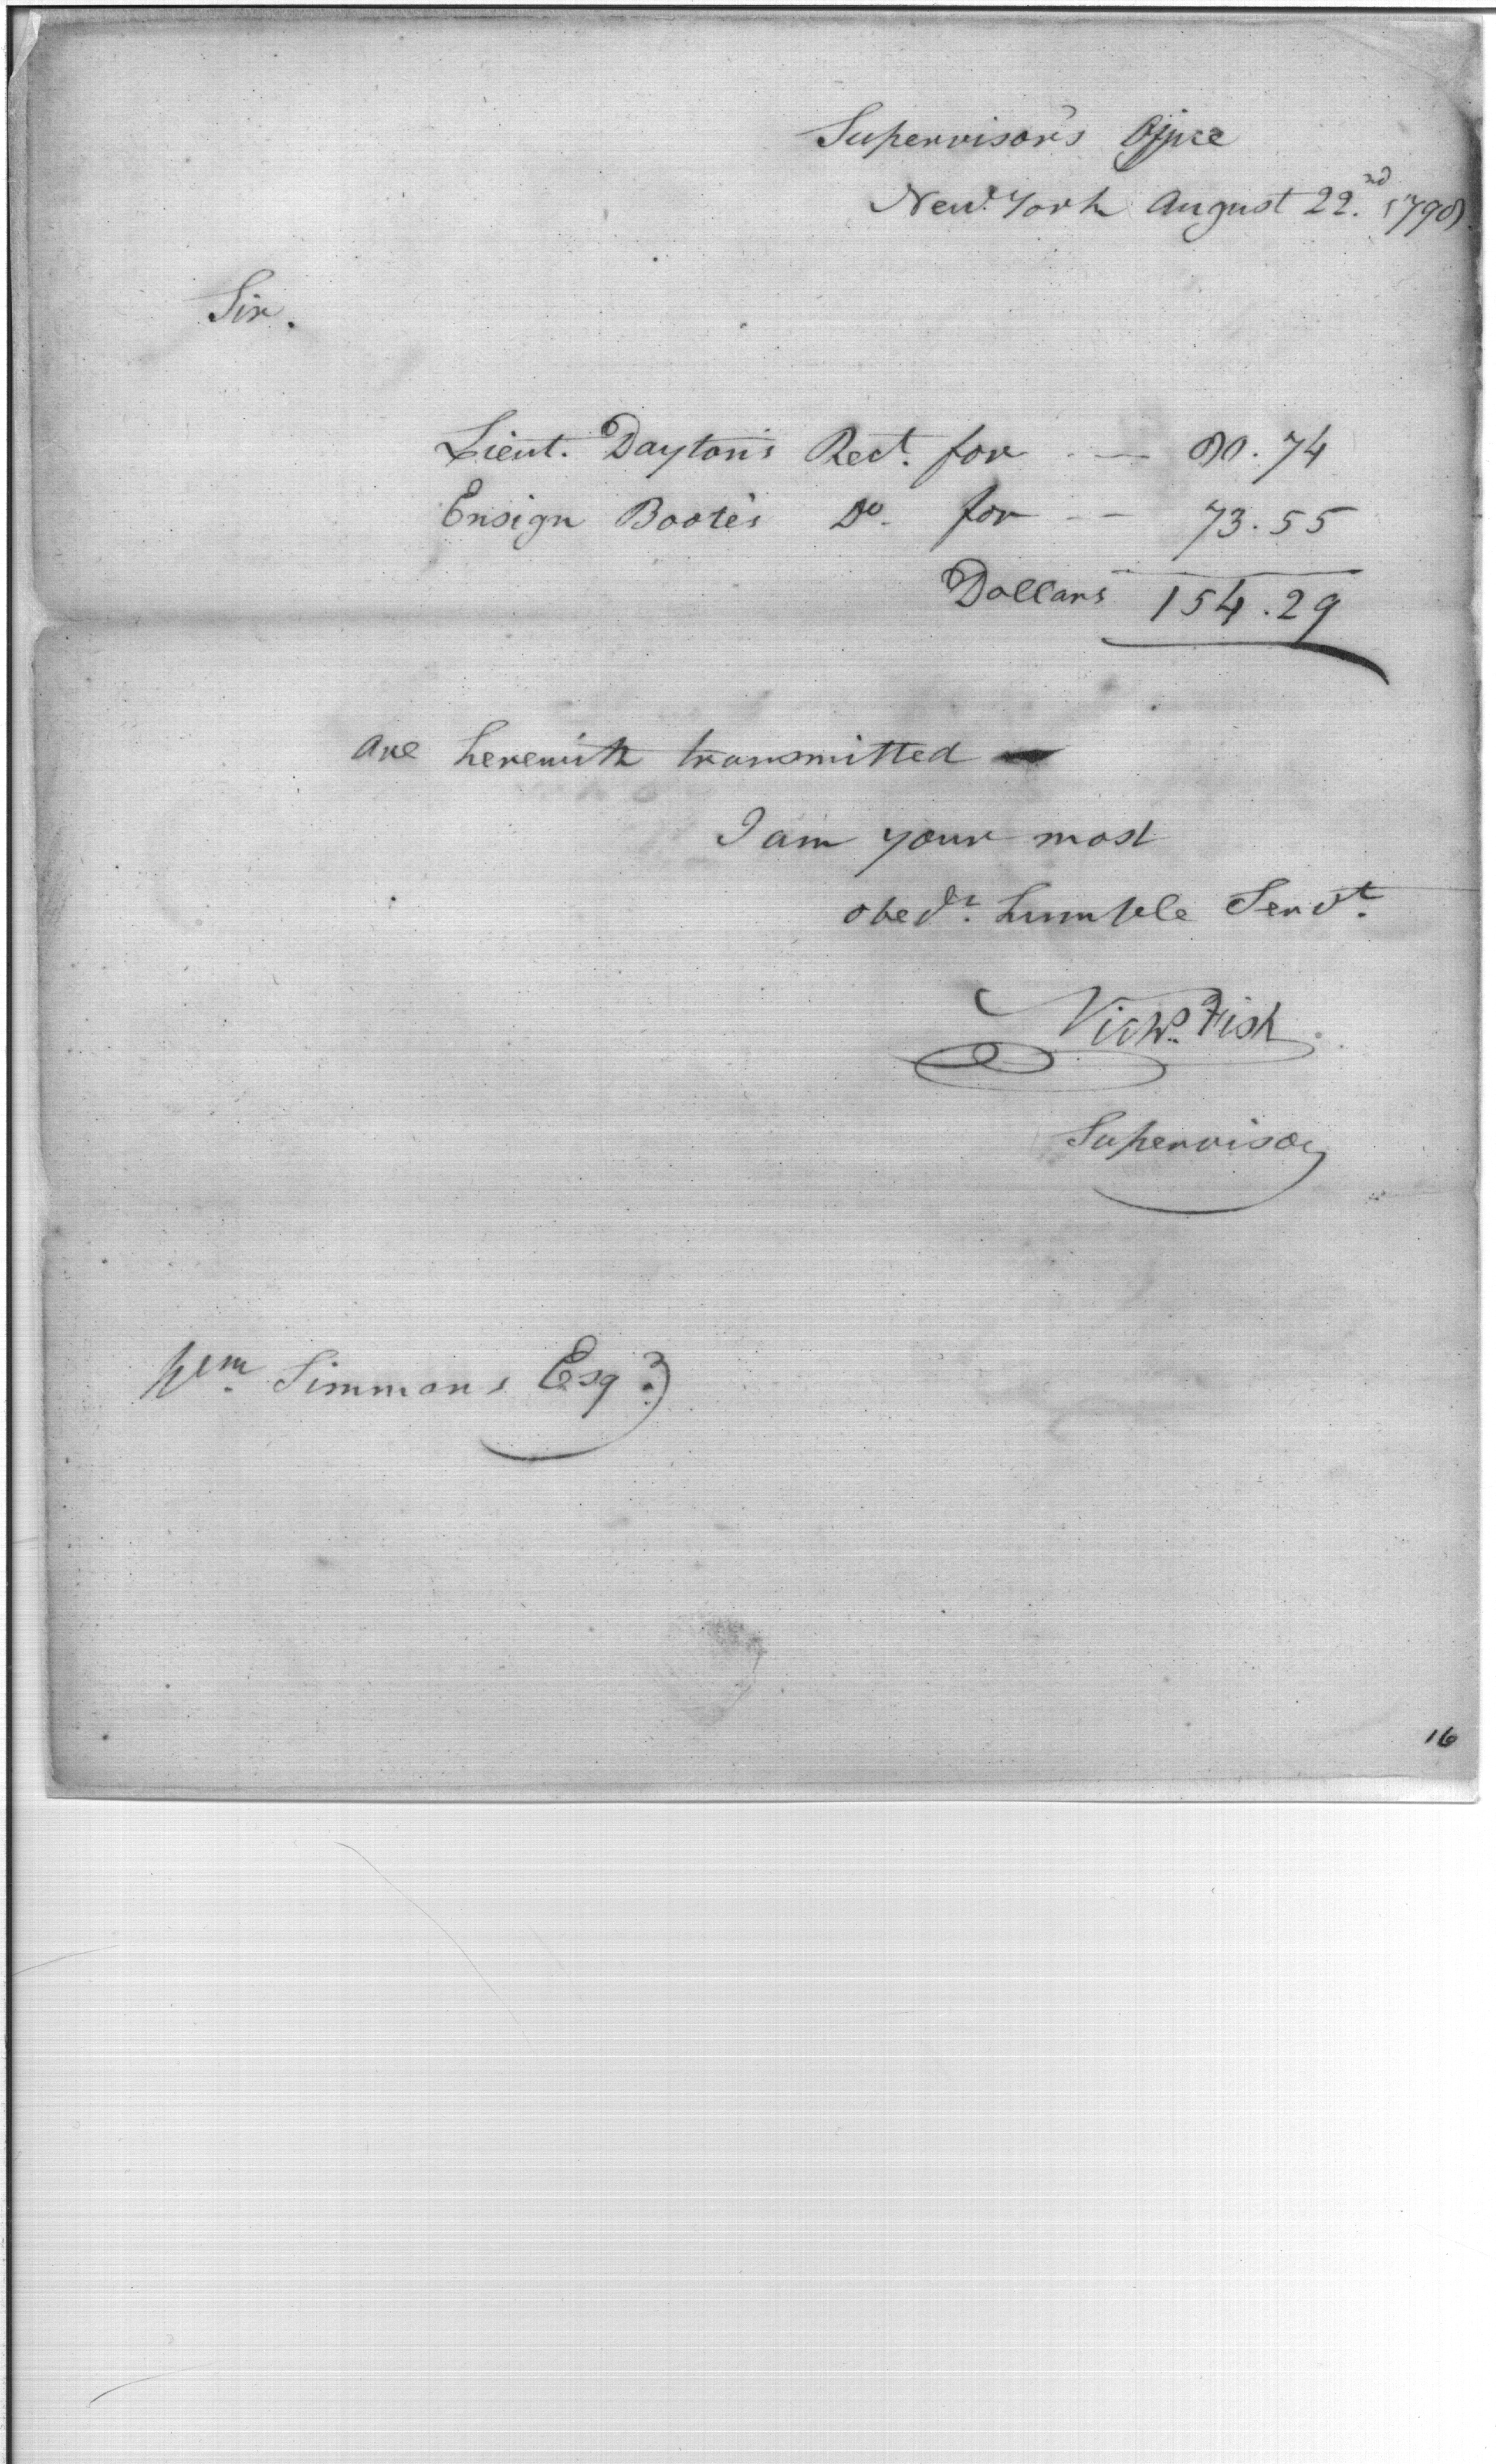 Supervisor's Office
New York August 22.nd 1798
Sir.
Lieut. Dayton's Rect. for - — 80.74
Ensign Boote's Do. for - — 73.55
Dollars 154.29
are herewith transmitted —
I am your most
obedt. humble Servt.
Nichs. Fish
Supervisor
Wm. Simmons Esqr.
16